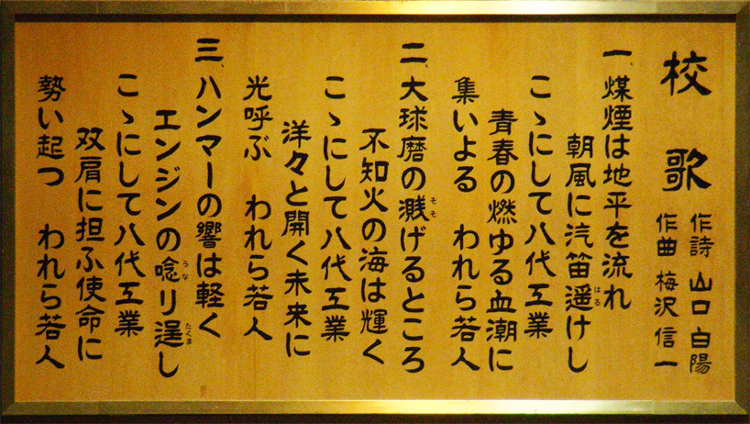 校歌
作詩 山口 白陽
作曲 梅沢 信一
一、煤煙は地平を流れ
朝風に汽笛遥けし
はる
こゝにして八代工業
青春の燃ゆる血潮に
集いよる われら若人
二、大球磨の濺げるところ
そそ
不知火の海は輝く
こゝにして八代工業
洋々と開く未来に
光呼ぶ われら若人
三、ハンマーの響は軽く
エンジンの唸り逞し
うな
たくま
こゝにして八代工業
双肩に担ふ使命に
勢い起つ われら若人